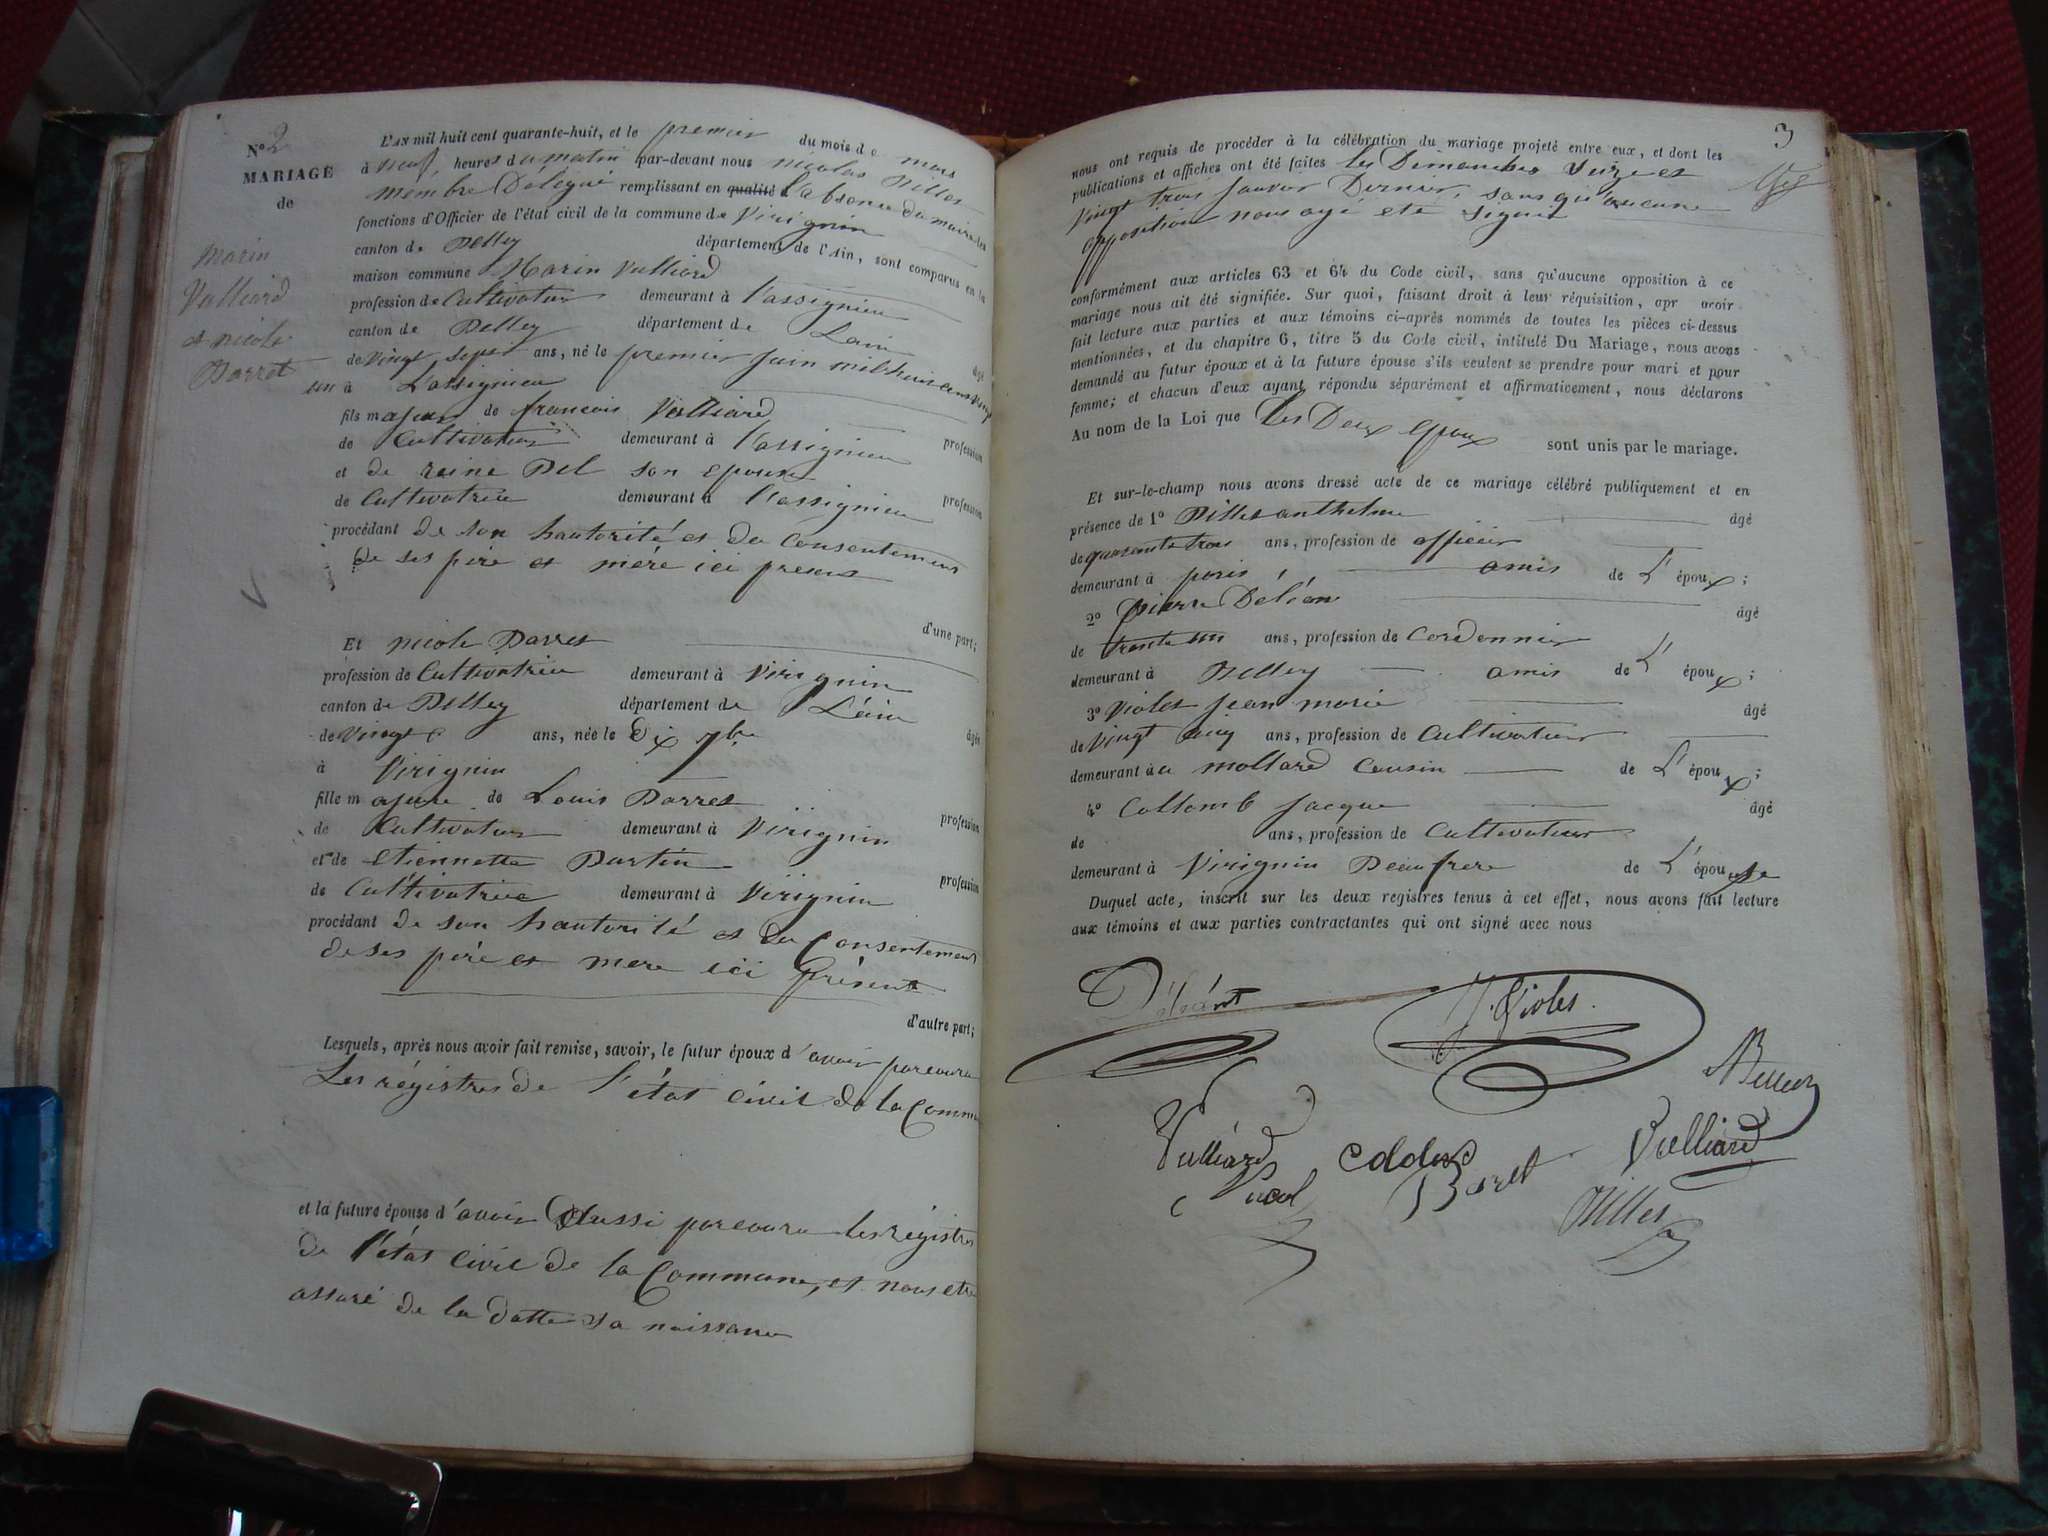 N° 2
MARIAGE
de
Marin
Vulliard
et nicole
Barret
L'AN mil huit cent quarante-huit, et le premier du mois de mars
à neuf heures du matin par-devant nous nicolas Billet
membre Délégué remplissant en qualité l'absence du maire les
fonctions d'Officier de l'état civil de la commune de Virignin
canton de Belley département de l'Ain, sont comparus en la
maison commune Marin Vulliard
profession de Cultivateur demeurant à l'assignieu
canton de Belley département de Lain
âgé
de Vingt sept ans, né le premier juin mil huit cent vingt
un à Lassignieu
fils majeur de francois Vulliard
profession
de Cultivateur demeurant à l'assignieu
et de reine Bel son epouse
profession
de Cultivatrice demeurant à l'assignieu
procédant de son hautorité et du Consentement
de ses pére et mére ici present
d'une part;
Et nicole Barret
profession de Cultivatrice demeurant à Virignin
canton de Belley département de Léin
âgée
de Vingt ans, née le Dix 7bre
à Virignin
fille majeure de Louis Barret
profession
de Cultivateur demeurant à Virignin
et de Etiennette Burtin
profession
de Cultivatrice demeurant à Virignin
procédant de son hautorité et du Consentement
de ses pére et mere ici présent
d'autre part;
Lesquels, après nous avoir fait remise, savoir, le futur époux d'avoir parcouru
Les régistres de l'état civil de la Commune
et la future épouse d'avoir Aussi parcouru les régistres
de l'état civil de la Commune, et nous etre
assuré de la datte sa naissance
3
nous ont requis de procéder à la célébration du mariage projeté entre eux, et dont les
publications et affiches ont été faites les Dimanches Seize et
Vingt trois Janvier Dernier, sans qu'aucune
opposition nous ayé eté signié
conformément aux articles 63 et 64 du Code civil, sans qu'aucune opposition à ce
mariage nous ait été signifiée. Sur quoi, faisant droit à leur réquisition, apr avoir
fait lecture aux parties et aux témoins ci-après nommés de toutes les pièces ci-dessus
mentionnées, et du chapitre 6, titre 5 du Code civil, intitulé Du Mariage, nous avons
demandé au futur époux et à la future épouse s'ils veulent se prendre pour mari et pour
femme; et chacun d'eux ayant répondu séparément et affirmativement, nous déclarons
Au nom de la Loi que Les Deux epoux sont unis par le mariage.
Et sur-le-champ nous avons dressé acte de ce mariage célébré publiquement et en
présence de 1° Billet anthelme âgé
de quarante trois ans, profession de officier
demeurant à paris, amis de L'époux;
2° pierre Déléan âgé
de trente un ans, profession de Cordonnier
demeurant à Belley amis de L'époux;
3° Violet jean marie âgé
de Vingt cinq ans, profession de Cultivateur
demeurant à au mollard Cousin de L'époux;
4° Collomb Jacque âgé
de ans, profession de Cultivateur
demeurant à Virignin Beaufrere de L'épouse
Duquel acte, inscrit sur les deux registres tenus à cet effet, nous avons fait lecture
aux témoins et aux parties contractantes qui ont signé avec nous
J. Violet
Vulliard
Barret
Vulliard
Billet